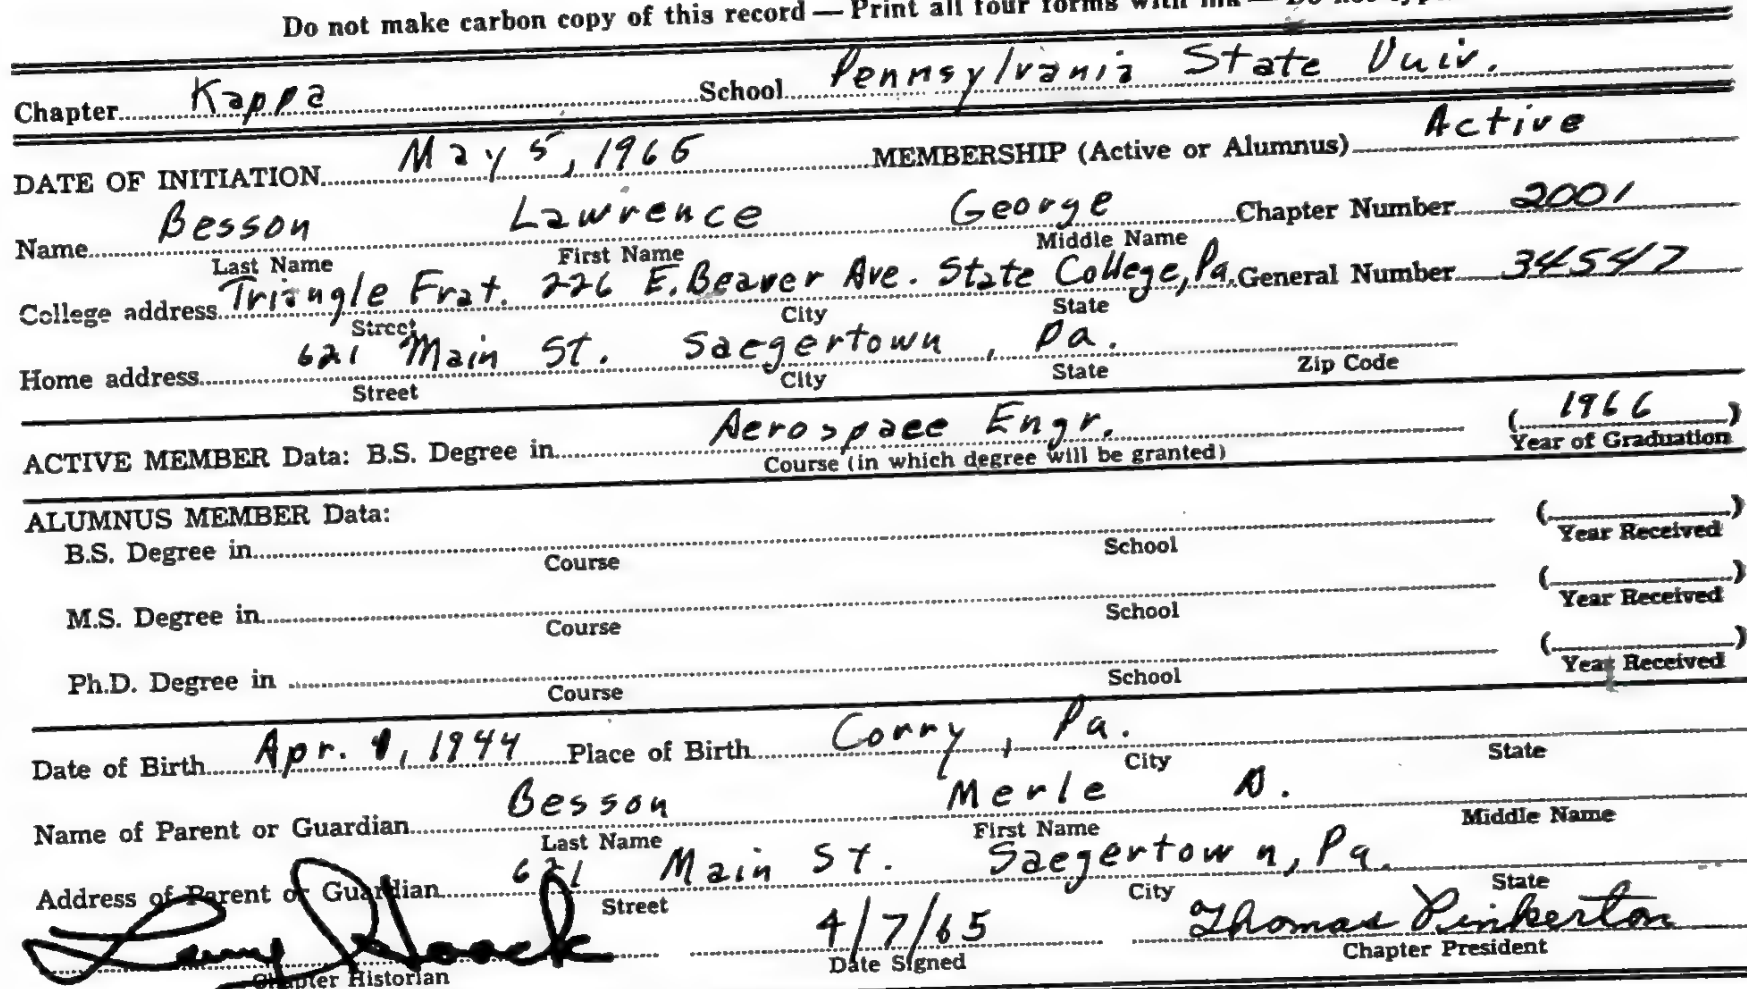 Do not make carbon copy of this record — Print all four forms with ink — Do not
Chapter Kappa School Pennsylvania State Univ.
DATE OF INITIATION May 5, 1965 MEMBERSHIP (Active or Alumnus) Active
Name Besson Lawrence George Chapter Number 2001
Last Name First Name Middle Name
College address Triangle Frat. 226 E. Beaver Ave. State College, Pa. General Number 34547
Street City State
Home address 621 Main St. Saegertown, Pa.
Street City State Zip Code
ACTIVE MEMBER Data: B.S. Degree in Aerospace Engr. (1966)
Course (in which degree will be granted) Year of Graduation
ALUMNUS MEMBER Data:
B.S. Degree in ( )
Course School Year Received
M.S. Degree in ( )
Course School Year Received
Ph.D. Degree in ( )
Course School Year Received
Date of Birth Apr. 1, 1944 Place of Birth Corry, Pa.
City State
Name of Parent or Guardian Besson Merle D.
Last Name First Name Middle Name
Address of Parent or Guardian 621 Main St. Saegertown, Pa.
Street City State
Larry 4/7/65 Thomas Pinkerton
Chapter Historian Date Signed Chapter President